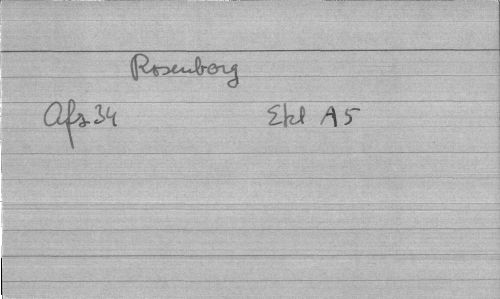 Rosenborg
Afs 34 Ekl A5